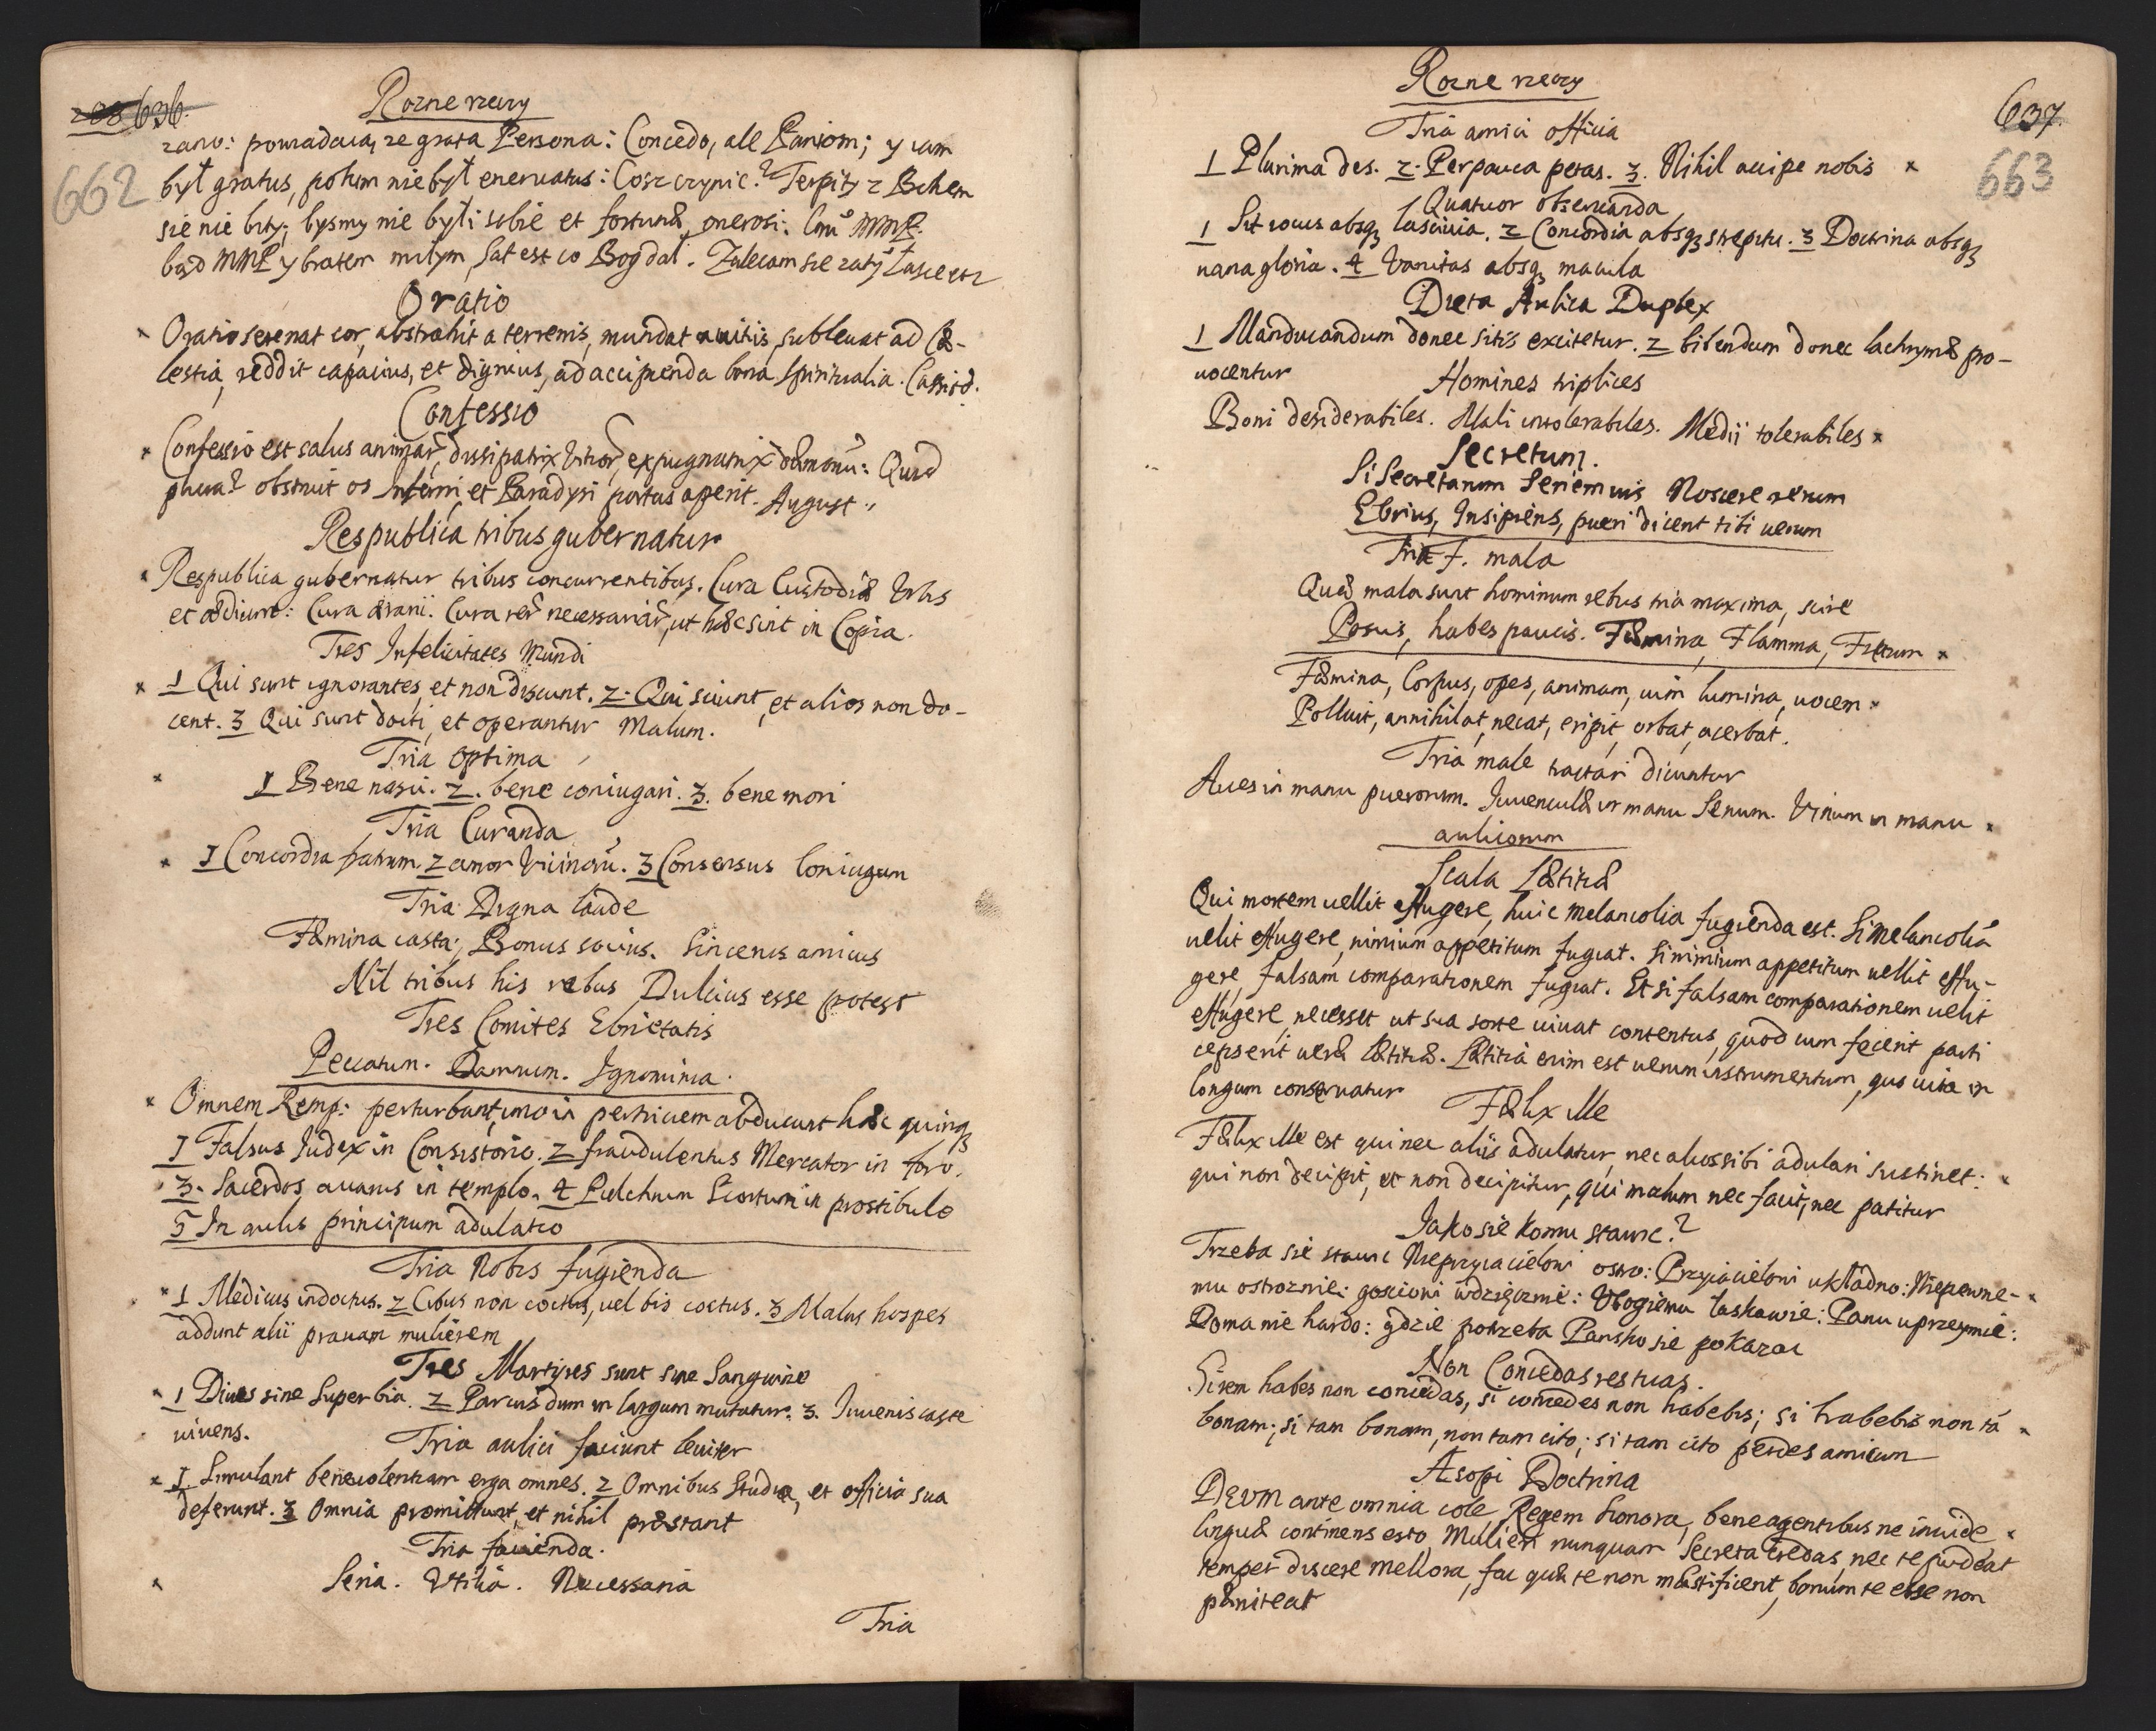 636.
662
Rozne rzeczy
rano: powiadaią, ze grata Persona: Concedo, ale Paniom; y iam
był gratus, potym nie był eneruatus: Cosz czynic? Terpity z Bohem
sie nie bity; bysmy nie byli sobie et fortunæ onerosi.
bąd MMP y bratem miłym, sat est co Bog dal. Zalecam sie
Oratio
Oratio serenat cor, abstrahit a terrenis, mundat a uitiis, subleuat ad Cæ-
lestia, reddit capacius, et dignius, ad accipienda bona spiritualia. Cassiod.
Confessio
Confessio est salus animar, dissipatrix Vitior, expugnatrix dæmonū: Quid
plura? obstruit os Inferni et Paradysi portas aperit. August.
Respublica tribus gubernatur
Respublica gubernatur tribus concurrentibus. Cura Custodiæ Vrbis
et ædium: Cura ærarii. Cura rer necessariar, ut hæc sint in Copia.
Tres Infelicitates Mundi
1 Qui sunt ignorantes, et non discunt. 2. Qui sciunt, et alios non do-
cent. 3 Qui sunt docti, et operantur Malum.
Tria optima
1 Bene nasci. 2. bene coniugari. 3. bene mori
Tria Curanda
1 Concordia fratrum 2 amor Vicinorū. 3 Consensus Coniugum
Tria Digna laude
Fæmina casta, Bonus socius. Sincerus amicus
Nil tribus his rebus Dulcius esse potest
Tres Comites Ebrietatis
Peccatum. Damnum. Ignominia.
Omnem Remp: perturbant, imo in pernitiem abducunt hæc quinqꝫ
1 Falsus Iudex in Consistorio. 2 fraudulentus Mercator in foro.
3. Sacerdos auarus in templo. 4 Pulchrum Scortum in prostibulo
5 In aulis principum adulatio
Tria Nobis fugienda
1 Medicus indoctus. 2 Cibus non coctus, uel bis coctus. 3 Malus hospes
addunt alii prauam mulierem
Tres Martyres sunt sine Sanguine
1 Diues sine Superbia. 2 Parcus dum in largum mutatur. 3. Iuuenis caste
uiuens.
Tria aulici faciunt leuiter
1 Simulant beneuolentiam erga omnes. 2 Omnibus Studia, et officia sua
deferunt. 3 Omnia promittunt, et nihil præstant
Tria facienda.
Seria. Vtilia. Necessaria
Tria
637.
663
Rozne rzeczy
Tria amici officia
1 Plurima des. 2. Perpauca petas. 3. Nihil accipe nobis
Quatuor obseruanda
1 Sit iocus absqꝫ lasciuia. 2 Concordia absqꝫ strepitu. 3 Doctrina absqꝫ
uana gloria. 4 Vanitas absqꝫ macula
Dieta Aulica Duplex
1 Manducandum donec sitis excitetur. 2 bibendum donec lachrymæ pro-
uocentur
Homines triplices
Boni desiderabiles. Mali intolerabiles. Medii tolerabiles
Secretum.
Si Secretarum Seriem uis Noscere rerum
Ebrius, Insipiens, pueri dicent tibi uerum
Tria F. mala
Quæ mala sunt hominum rebus tria maxima, scire
Posuis, habes paucis. Fæmina, Flamma, Fretum
Fæmina, Corpus, opes, animam, uim lumina, uocem
Polluit, annihilat, necat, eripit, orbat, acerbat.
Tria male tractari dicuntur
Aues in manu puerorum. Iuuenculæ in manu Senum. Vinum in manu
aulicorum
Scala Lætitiæ
Qui mortem uellit effugere, huic melancolia fugienda est. Si melancoliā
uelit effugere, nimium appetitum fugiat. Si nimium appetitum uellit effu-
gere, falsam comparationem fugiat. Et si falsam comparationem uelit
effugere, necesset ut sua sorte uiuat contentus, quod cum fecerit parti
ceps erit ueræ lætitiæ. Lætitia enim est uerum instrumentum, quo uita in
longum conseruatur
Fælix ille
Fælix ille est qui nec aliis adulatur, nec alios sibi adulari sustinet:
qui non decipit, et non decipitur, qui malum nec facit, nec patitur
Iako sie komu stawic?
Trzeba sie stawic Nieprzyiacielowi ostro: Przyiacielowi układno: Niepewne-
mu ostroznie: gosciowi wdzięcznie: Vbogiemu łaskawie: Panu uprzeymie:
Doma nie hardo: gdzie potrzeba Pansko sie pokazac
Non Concedas res tuas.
Si rem habes non concedas, si concedes non habebis; si habebis non tā
bonam; si tam bonam, non tam cito; si tam cito perdes amicum
Æsopi Doctrina
DEVM ante omnia cole, Regem honora, bene agentibus ne inuide
linguæ continens esto, Mulieri nunquam Secreta credas, nec te pudeat
semper discere meliora, fac quæ te non mæstificent, bonum te esse non
pæniteat